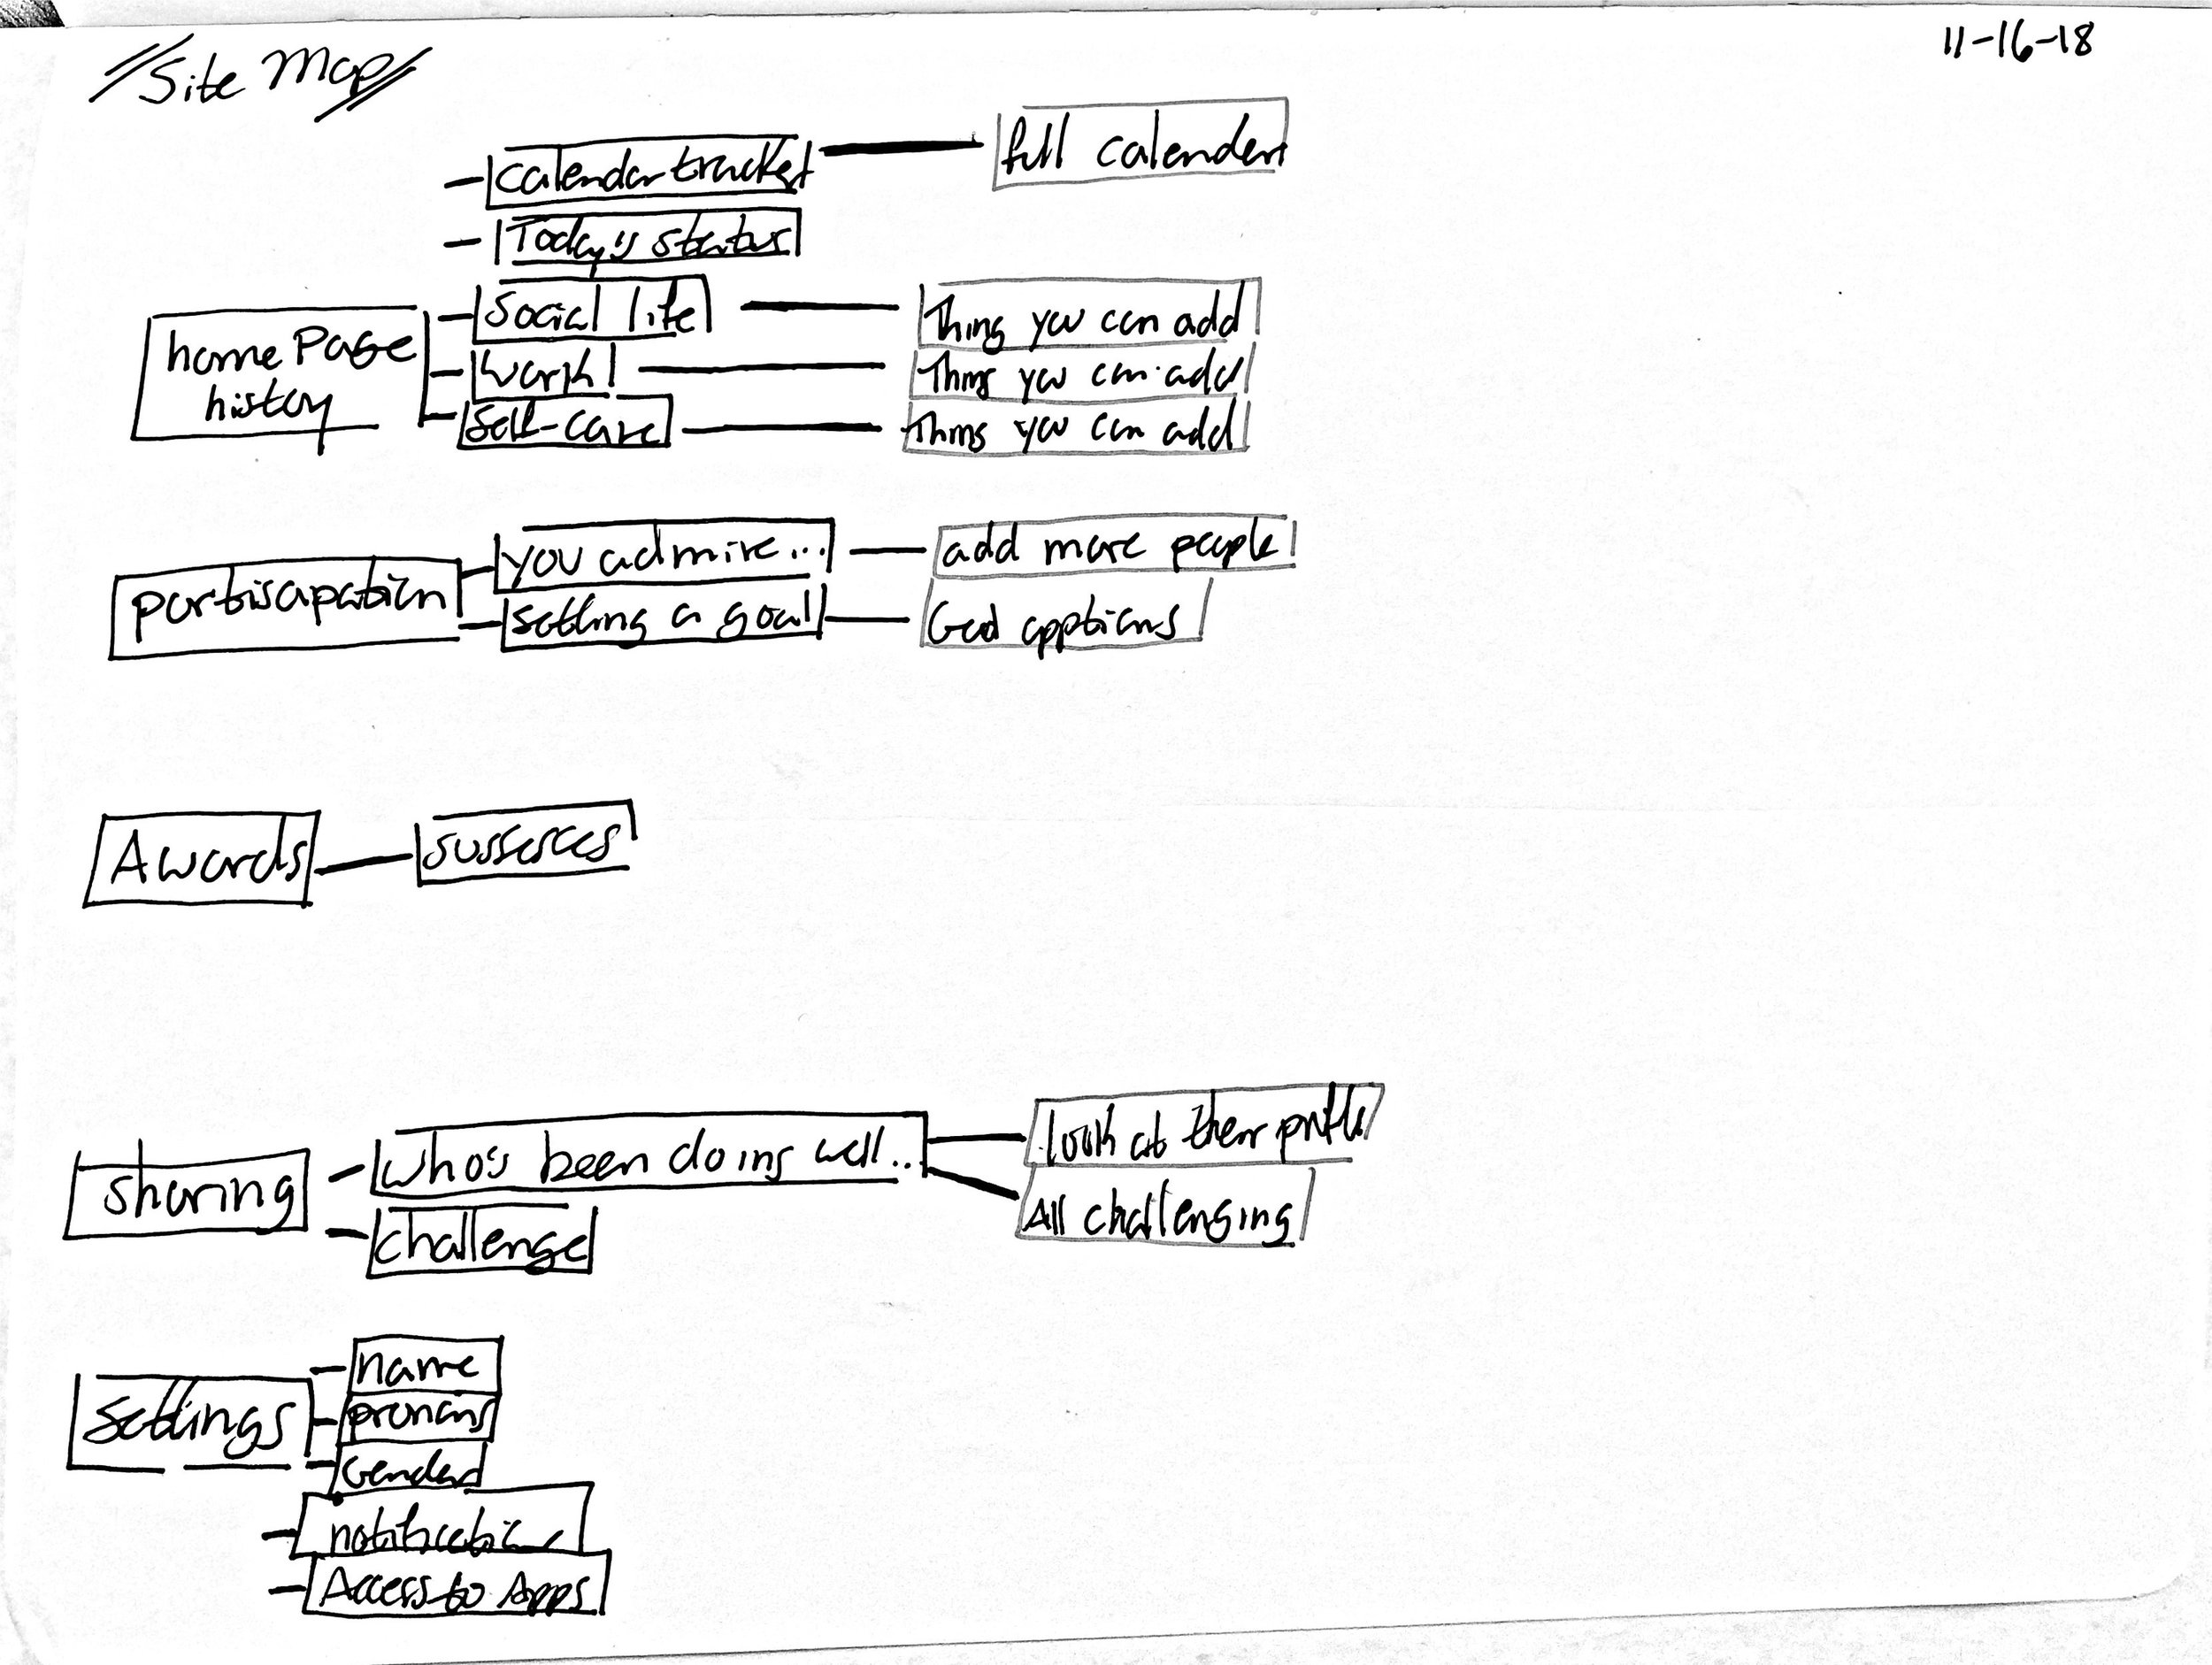 Site Map
11-16-18
calendar tracker
full calender
Today's status
Social life
Thing you can add
home Page
history
work
Things you can add
Self-care
Things you can add
you admire...
add more people
partiscapation
setting a goal
Goal opptions
Awards
sussesces
who's been doing well..
look at their profile
sharing
All challenging
challenge
name
settings
pronons
Gender
notification
Access to Apps